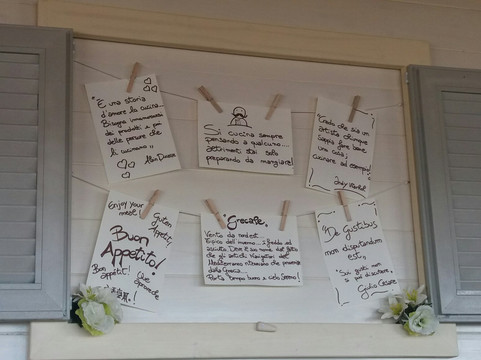 "È una storia
d'amore la cucina...
Bisogna innamorarsi
dei prodotti e poi
delle persone che
li cucinano"
Alain Ducasse
Si cucina sempre
pensando a qualcuno...
altrimenti stai solo
preparando da mangiare!
"Credo che sia un
artista chiunque
sappia fare bene
una cosa;
cucinare ad esempio"
Andy Warhol
Enjoy your
meal!
Guten
Appetit!
Buon
Appetito!
Bon
appétit!
Que
aproveche
"Grecale"
Vento da nord est...
Tipico dell'inverno... freddo ed
asciutto. Deve il suo nome dal fatto
che gli antichi Navigatori del
Mediterraneo ritenevano che provenisse
dalla Grecia...
Porta tempo buono e cielo sereno!
"De Gustibus
non disputandum
est"
"Sui gusti non
si può discutere"
Giulio Cesare